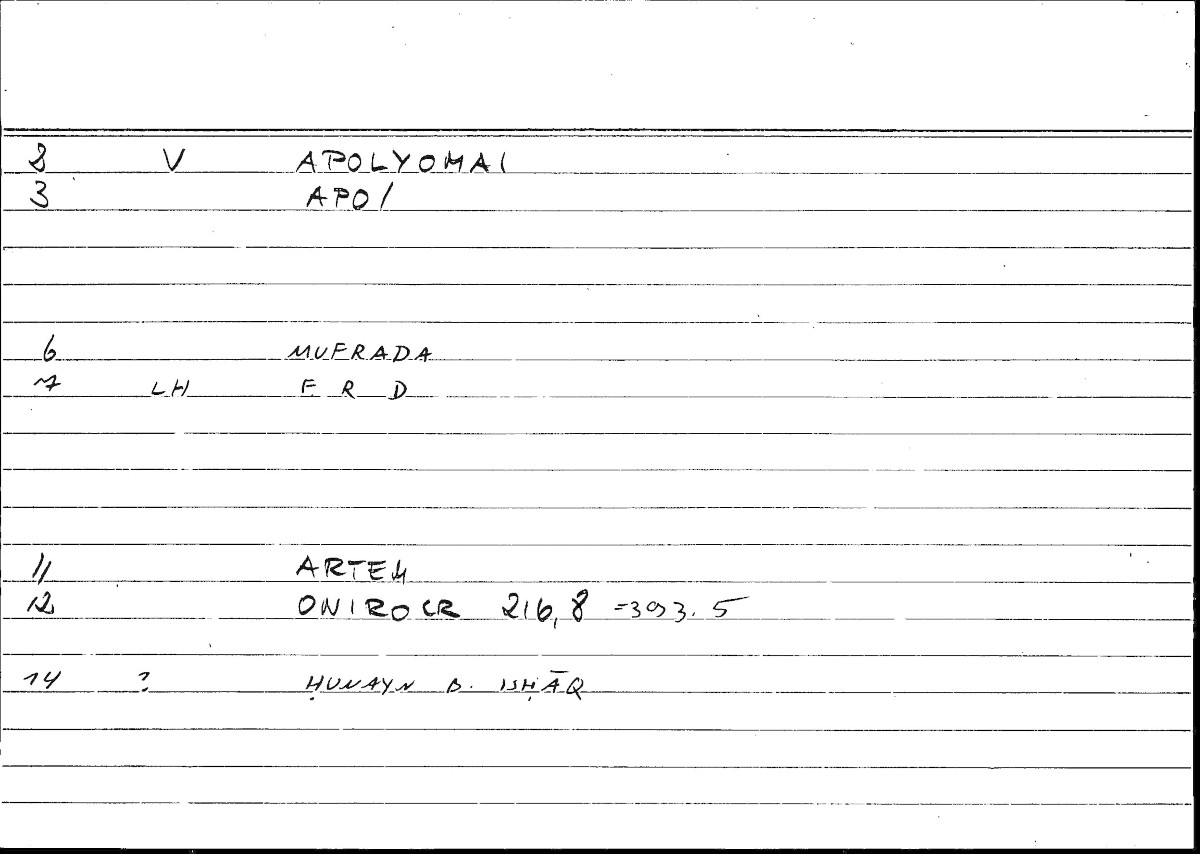 2 V APOLYOMAI
3 APO/
6 MUFRADA
7 LH F R D
11 ARTEM
12 ONIROCR 216,8 =393.5
14 ? ḤUNAYN B. ISḤĀQ